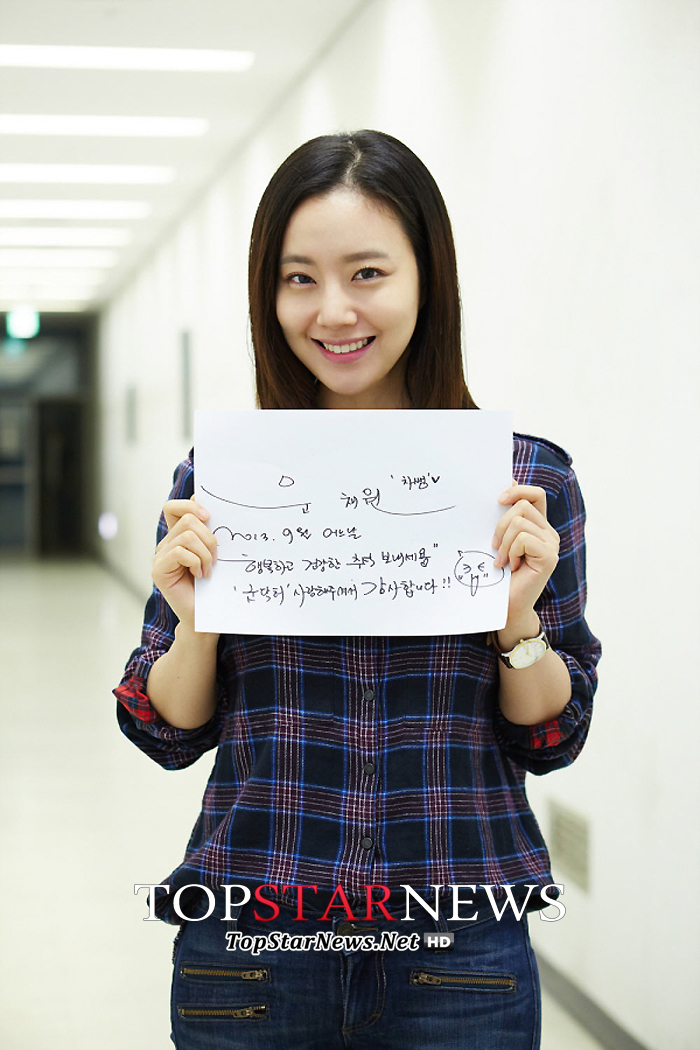 문 채원 '차쌤'
2013. 9월 어느날
"행복하고 건강한 추석 보내세용"
'굳닥터' 사랑해주셔서 감사합니다!!
TOPSTARNEWS
TopStarNews.Net HD